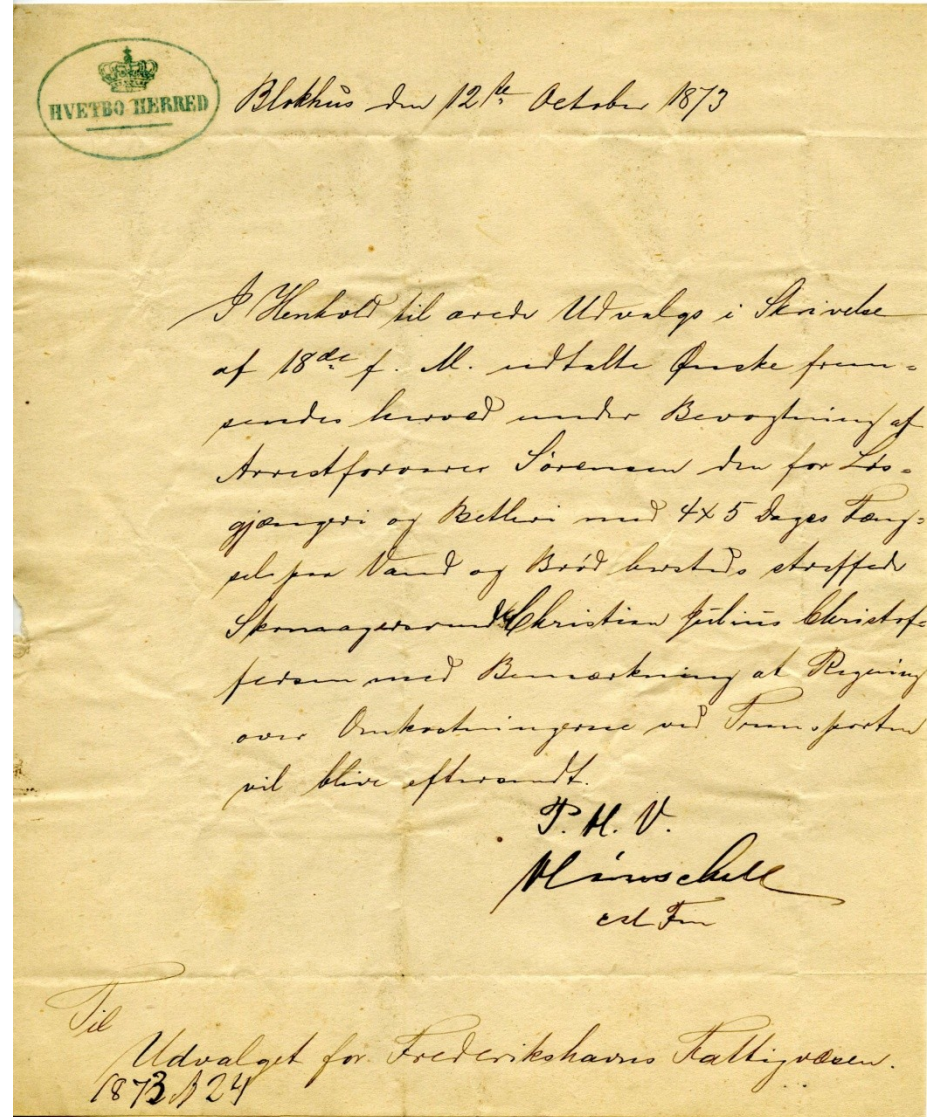 HVETBO HERRED
Blokhus den 12te October 1873
I Henhold til ærede Udvalgs i Skrivelse
af 18de f. M. udtalte Ønske frem=
sendes herved under Bevogtning af
Arrestforvarer Sørensen den for Løs=
gjængeri og Betleri med 4x5 Dages Fæng=
sel paa Vand og Brød hersteds straffede
Skomagersvend Christian Julius Christof=
fersen med Bemærkning at Regning
over Omkostningerne ved Transporten
vil blive eftersendt.
P. H. V.
cst Fm
Til
Udvalget for Frederikshavns Fattigvæsen.
1873 N 24